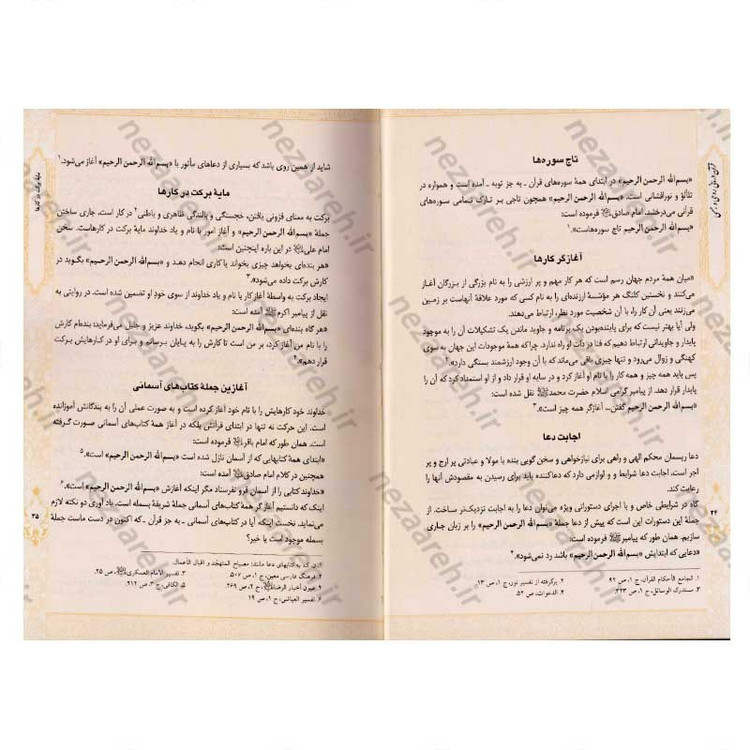 تاج سوره‌ها
«بسم‌الله الرحمن الرحیم» در ابتدای همهٔ سوره‌های قرآن ـ به جز توبه ـ آمده است و همواره در
تلألؤ و نورافشانی است. «بسم‌الله الرحمن الرحیم» همچون تاجی بر تارک تمامی سوره‌های
قرآنی می‌درخشد. امام صادق فرموده است:
«بسم‌الله الرحمن الرحیم تاج سوره‌هاست».۱
آغازگر کارها
«میان همهٔ مردم جهان رسم است که هر کار مهم و پر ارزشی را به نام بزرگی از بزرگان آغاز
می‌کنند و نخستین کلنگ هر مؤسسهٔ ارزنده‌ای را به نام کسی که مورد علاقهٔ آنهاست بر زمین
می‌زنند یعنی آن کار راه با آن شخصیت مورد نظر، ارتباط می‌دهند.
ولی آیا بهتر نیست که برای پاینده‌بودن یک برنامه و جاوید ماندن یک تشکیلات آن را به موجود
پایدار و جاویدانی ارتباط دهیم که فنا در ذات او راه ندارد. چراکه همهٔ موجودات این جهان به سوی
کهنگی و زوال می‌رود و تنها چیزی باقی می‌ماند که با آن وجود ارزشمند بستگی دارد».۲
پس باید همه چیز و همه کار را با نام او آغاز کرد و در سایه او قرار داد و از او استمداد کرد که آن را
پایدار قرار دهد. از پیامبر گرامی اسلام حضرت محمد نقل شده است:
«بسم‌الله الرحمن الرحیم گفتن... آغازگر همه چیز است».۳
اجابت دعا
دعا ریسمان محکم الهی و راهی برای نیازخواهی و سخن گویی بنده با مولا و عبادتی پر ارج و پر
اجر است. اجابت دعا شرایط و و لوازمی دارد که دعاکننده باید برای رسیدن به مقصودش آنها را
رعایت کند.
گاه در شرایطی خاص و با اجرای دستوراتی ویژه می‌توان دعا را به اجابت نزدیک‌تر ساخت. از
جملهٔ این دستورات این است که پیش از دعا جملهٔ «بسم‌الله الرحمن الرحیم» را بر زبان جاری
سازیم. همان طور که پیامبر فرموده است:
«دعایی که ابتدایش «بسم‌الله الرحمن الرحیم» باشد رد نمی‌شود».۴
۱. الجامع لأحکام القرآن، ج ۱، ص ۹۲
۲. برگرفته از تفسیر نور، ج ۱، ص ۱۳.
۳. مستدرک الوسائل، ج ۱، ص
۴. الدعوات، ص ۵۲
۲۴
شاید از همین روی باشد که بسیاری از دعاهای مأثور با «بسم‌الله الرحمن الرحیم» آغاز می‌شود.۱
مایهٔ برکت در کارها
برکت به معنای فزونی یافتن، خجستگی و بالندگی ظاهری و باطنی۲ در کار است. جاری ساختن
جملهٔ «بسم‌الله الرحمن الرحیم» و آغاز امور با نام و یاد خداوند مایهٔ برکت در کارهاست. سخن
امام علی در این باره اینچنین است:
«هر بنده‌ای بخواهد چیزی بخواند یا کاری انجام دهد و «بسم‌الله الرحمن الرحیم» بگوید در
کارش برکت داده می‌شود».۳
ایجاد برکت به واسطهٔ آغاز کار با نام و یاد خداوند از سوی خود او تضمین شده است. در روایتی به
نقل از پیامبر اکرم آمده است:
«هر گاه بنده‌ای «بسم‌الله الرحمن الرحیم» بگوید، خداوند عزیز و جلیل می‌فرماید: بنده‌ام کارش
را با نام من آغاز کرد، بر من است تا کارش را به پایان برسانم و برای او در کارهایش برکت
قرار دهم».۴
آغازین جملهٔ کتاب‌های آسمانی
خداوند خود کارهایش را با نام خود آغاز کرده است و به صورت عملی آن را به بندگانش آموزانده
است. این حرکت نه تنها در ابتدای قرآنش بلکه در آغاز همهٔ کتاب‌های آسمانی صورت گرفته
است. همان طور که امام باقر فرموده است:
«ابتدای همهٔ کتابهایی که از آسمان نازل شده است «بسم‌الله الرحمن الرحیم» است».۵
همچنین در کلام امام صادق آمده است:
«خداوند کتابی را از آسمان فرو نفرستاد مگر اینکه آغازش «بسم‌الله الرحمن الرحیم» است».۶
اینک که دانستیم آغاز گر همهٔ کتاب‌های آسمانی جملهٔ شریفهٔ بسمله است، یاد آوری دو نکته لازم
می‌نماید. نخست اینکه آیا در کتاب‌های آسمانی ـ به جز قرآن ـ که اکنون در دست ماست جملهٔ
بسمله موجود است یا خیر؟
۱. ن.ک به کتابهای دعا مانند: مصباح المتهجّد و اقبال الأعمال.
۲. فرهنگ فارسی معین، ج ۱، ص ۵۰۷
۳. تفسیر الامام العسکری، ص ۲۵.
۴. عیون أخبار الرضا، ج ۲، ص ۲۶۹
۵. الکافی، ج ۳، ص
۶. تفسیر العیاشی، ج ۱، ص ۱۹
مایهٔ برکت در کارها
۲۵
nezaareh.ir